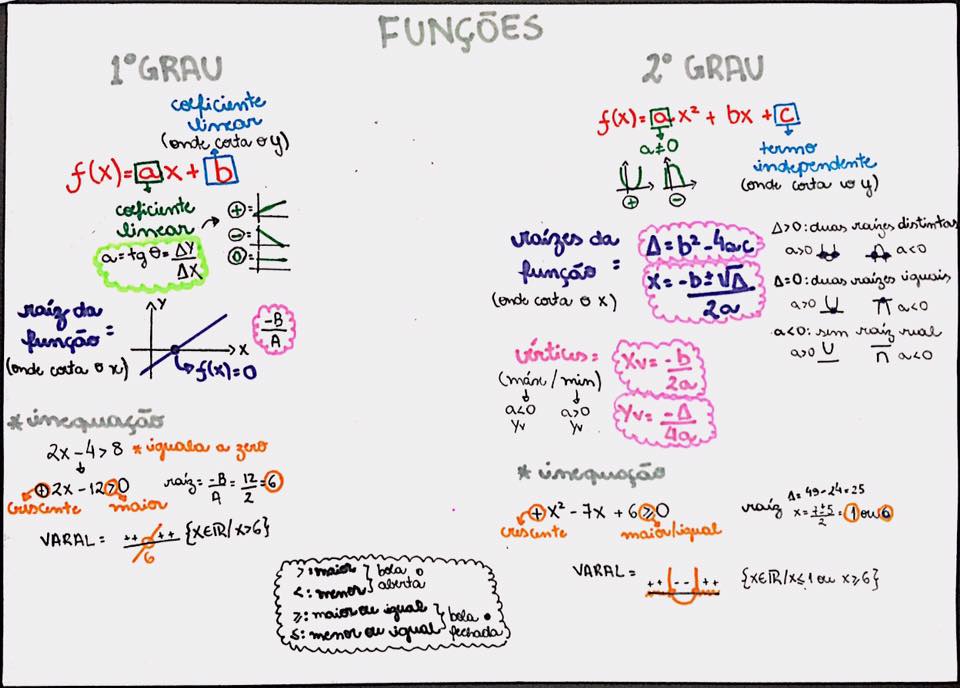 FUNÇÕES
1º GRAU
coeficiente
linear
(onde corta o y)
f(x)= a x + b
coeficiente
linear
a = tg θ = ΔY/ΔX
+ =
- =
0 =
raíz da
função =
(onde corta o x)
Y
X
f(x)=0
-B/A
* inequação
2x - 4 > 8 * iguala a zero
+2x - 12 > 0
crescente maior
raíz = -B/A = 12/2 = 6
VARAL = ++ ++ {x∈ℝ/x>6}
6
> : maior } bola
< : menor } aberta
≥ : maior ou igual } bola
≤ : menor ou igual } fechada
2º GRAU
f(x)= a x² + bx + c
a≠0
+ -
termo
independente
(onde corta o y)
raízes da
função =
(onde corta o x)
Δ = b² - 4ac
X = -b ± √Δ/2a
Δ>0: duas raízes distintas
a>0 a<0
Δ=0: duas raízes iguais
a>0 a<0
a<0: sem raíz real
a>0 a<0
vértices =
(máx / min)
a<0 a>0
Yv Yv
Xv = -b/2a
Yv = -Δ/4a
* inequação
+x² - 7x + 6 ≥ 0
crescente maior/igual
raíz Δ= 49-24=25
x= 7±5/2 = 1 ou 6
VARAL = ++ -- ++ {x∈ℝ/x≤1 ou x≥6}